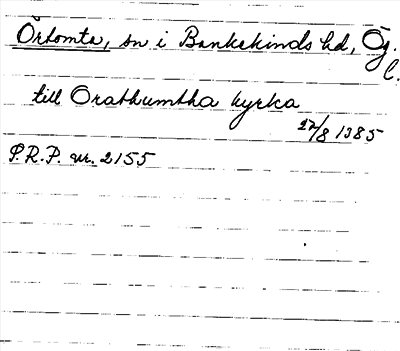 Örtomta, sn i Bankekinds hd, Ög.
l.
till Orathumtha kyrka
27/8 1385
P.R.P. nr. 2155